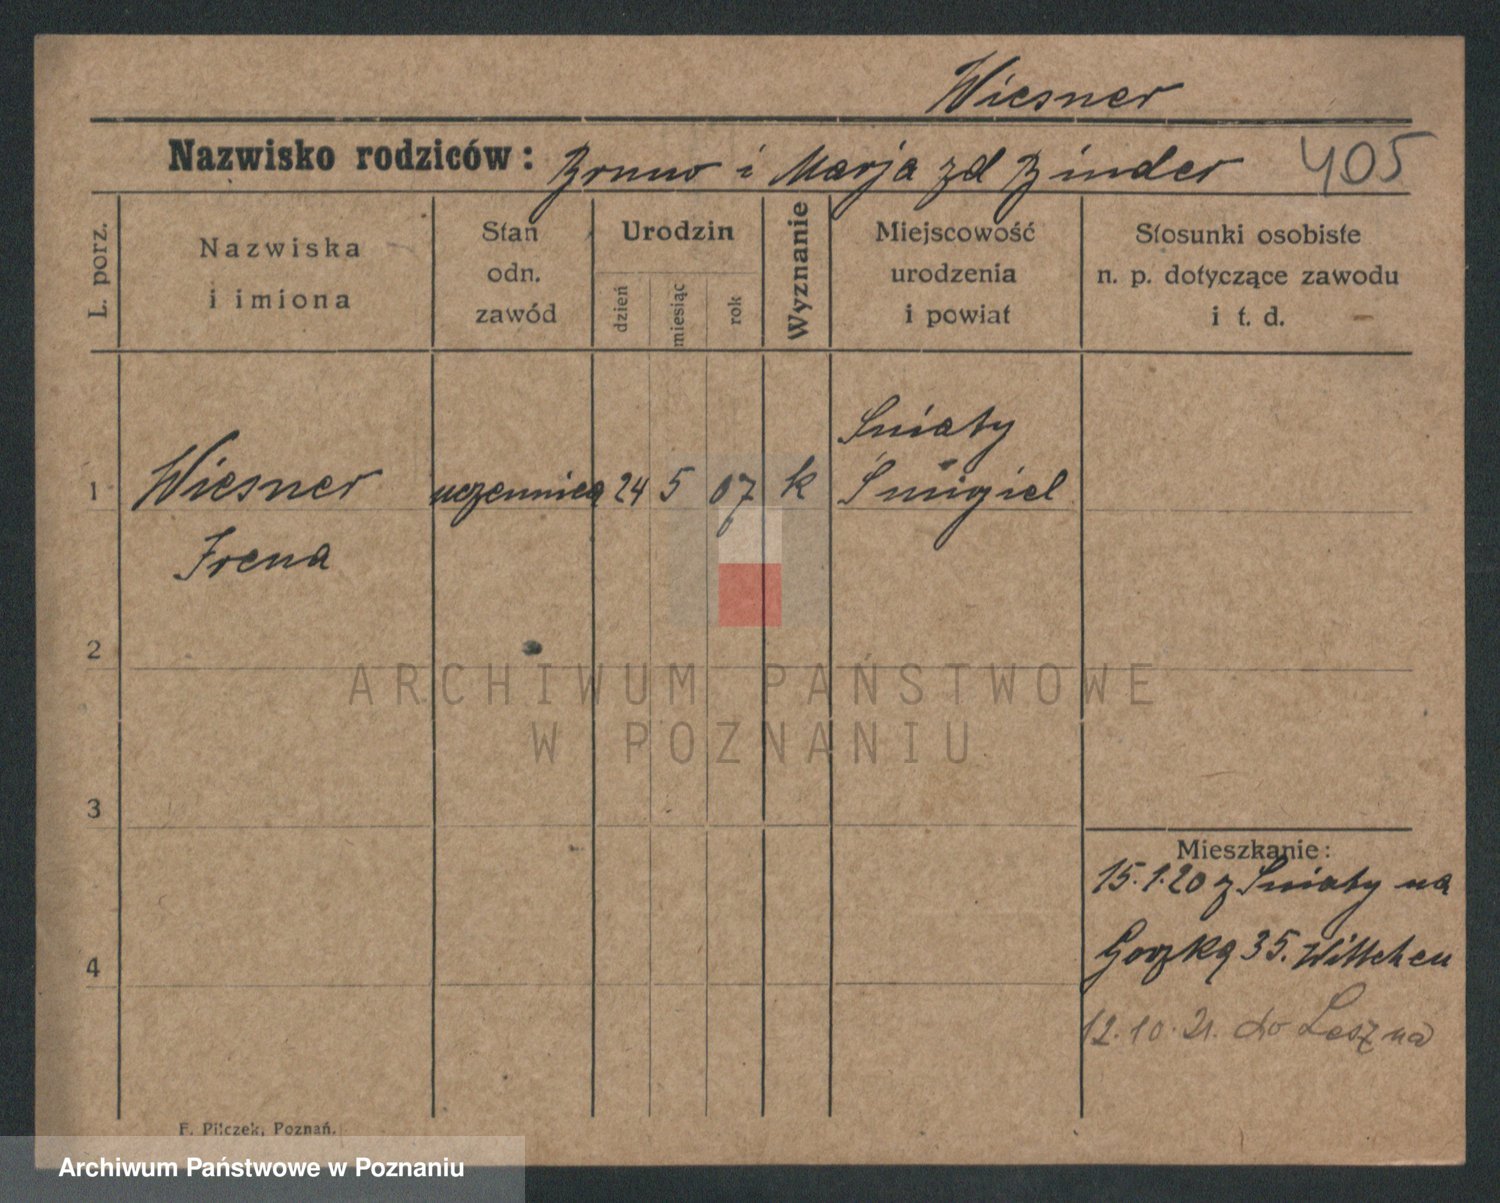 Wiesner
Nazwisko rodziców: Bruno i Marja zd Binder 405
L. porz.
Nazwiska
i imiona
Stan
odn.
zawód
Urodzin
dzień
miesiąc
rok
Wyznanie
Miejscowość
urodzenia
i powiat
Stosunki osobiste
n. p. dotyczące zawodu
i t. d.
1 Wiesner uczennica 24 5 07 k Śniaty
Śmigiel
Irena
2
3
4
ARCHIWUM PAŃSTWOWE
W POZNANIU
Mieszkanie:
15.1.20 z Śniaty na
35. Wittchen
12.10.21. do Leszna
F. Pilczek, Poznań.
Archiwum Państwowe w Poznaniu